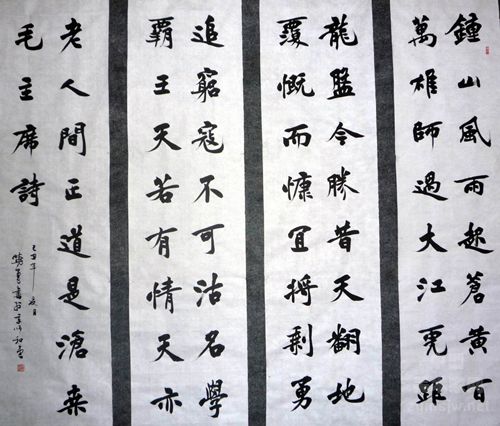 鍾山風雨起蒼黃百
萬雄師過大江虎踞
龍盤今勝昔天翻地
覆慨而慷宜將剩勇
追窮寇不可沽名學
霸王天若有情天亦
老人間正道是滄桑
毛主席詩
己丑年夏月